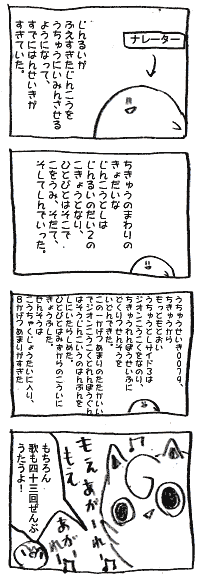 ナレーター
じんるいが
ふえすぎたじんこうを
うちゅうにいみんさせる
ようになって、
すでにはんせいきが
すぎていた。
ちきゅうのまわりの
きょだいな
じんこうとしは
じんるいのだい2の
こきょうとなり、
ひとびとはそこで
こをうみ、そだて、
そしてしんでいった。
うちゅうせいき0079、
ちきゅうから
もっともとおい
うちゅうとしサイド3は
ジオンこうこくをなのり、
ちきゅうれんぽうせいふに
どくりつせんそうを
いどんできた。
この一かげつあまりのたたかい
でジオンこうこくとれんぽうぐん
はそうじんこうのはんぶんを
しにいたらしめた。
ひとびとはみずからのこういに
きょうふした。
せんそうは
こうちゃくじょうたいに入り、
8かげつあまりがすぎた
G
もえあがーれー
もえ
あがーれー
もちろん
歌も四十三回ぜんぶ
うたうよ!